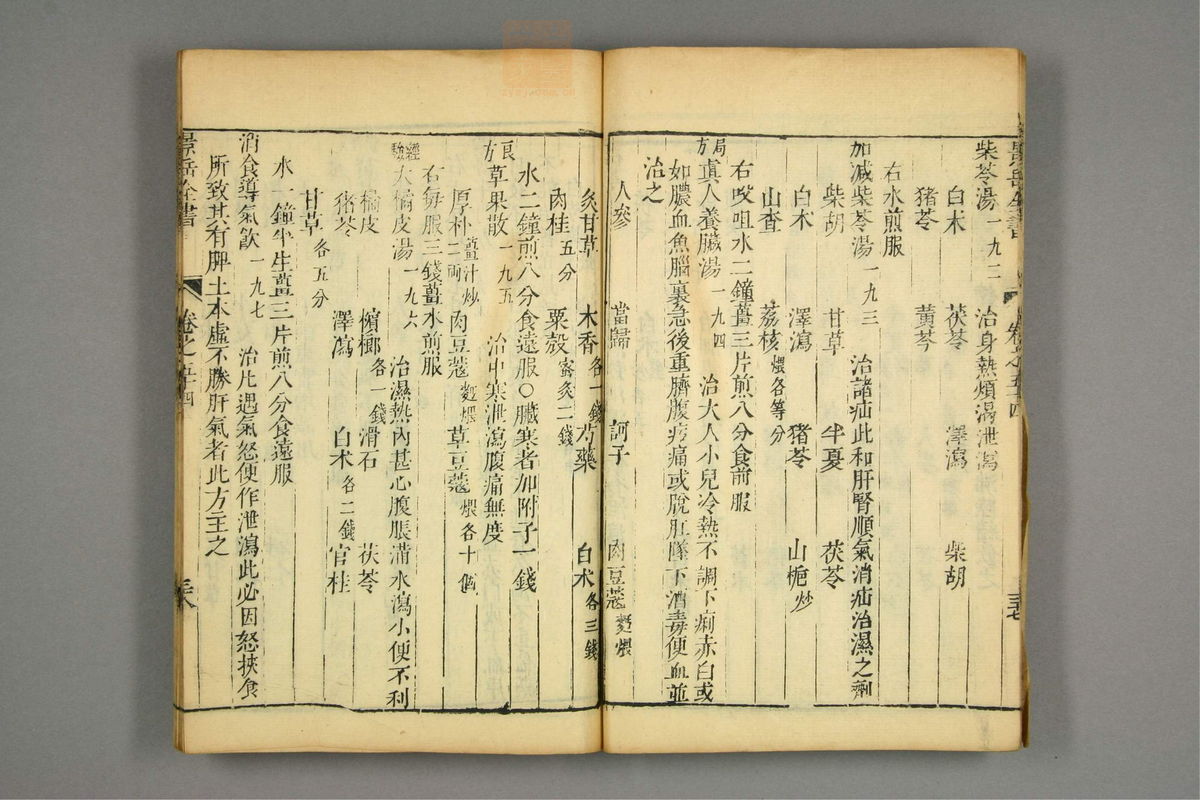 景岳全書 卷之五十四 三七
柴苓湯一九二 治身熱煩渴泄瀉
白术 茯苓 澤瀉 柴胡
豬苓 黃芩
右水煎服
加減柴苓湯一九三 治諸疝此和肝腎順氣消疝治濕之劑
柴胡 甘草 半夏 茯苓
白术 澤瀉 豬苓 山梔炒
山查 荔核煨各等分
右㕮咀水二鐘薑三片煎八分食前服
局方真人養臟湯一九四 治大人小兒冷熱不調下痢赤白或
如膿血魚腦裏急後重臍腹㽲痛或脫肛墜下酒毒便血並
治之
人參 當歸 訶子 肉豆蔻麪煨
炙甘草 木香各一錢 芍藥 白术各三錢
肉桂五分 粟殼蜜炙二錢
水二鐘煎八分食遠服○臟寒者加附子一錢
良方草果散一九五 治中寒泄瀉腹痛無度
厚朴二兩薑汁炒 肉豆蔻麪煨 草豆蔻煨各十個
右每服三錢薑水煎服
經驗大橘皮湯一九六 治濕熱內甚心腹脹滿水瀉小便不利
橘皮 檳榔各一錢 滑石 茯苓
豬苓 澤瀉 白术各二錢 官桂
甘草各五分
水一鐘半生薑三片煎八分食遠服
消食導氣飲一九七 治凡遇氣怒便作泄瀉此必因怒挾食
所致其有脾土本虛不勝肝氣者此方主之
景岳全書 卷之五十四 三八